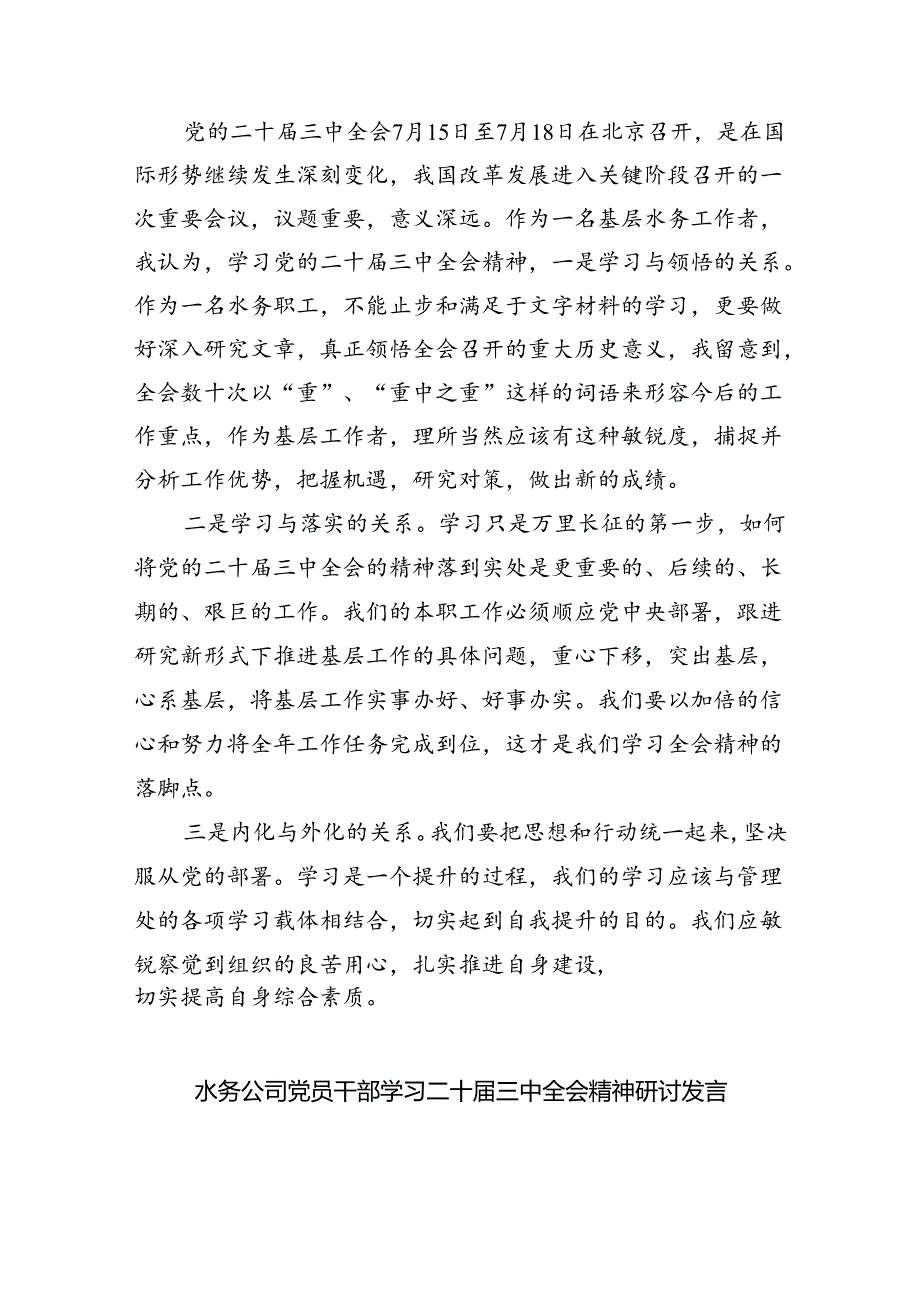 党的二十届三中全会7月15日至7月18日在北京召开，是在国
际形势继续发生深刻变化，我国改革发展进入关键阶段召开的一
次重要会议，议题重要，意义深远。作为一名基层水务工作者，
我认为，学习党的二十届三中全会精神，一是学习与领悟的关系。
作为一名水务职工，不能止步和满足于文字材料的学习，更要做
好深入研究文章，真正领悟全会召开的重大历史意义，我留意到，
全会数十次以“重”、“重中之重”这样的词语来形容今后的工
作重点，作为基层工作者，理所当然应该有这种敏锐度，捕捉并
分析工作优势，把握机遇，研究对策，做出新的成绩。
二是学习与落实的关系。学习只是万里长征的第一步，如何
将党的二十届三中全会的精神落到实处是更重要的、后续的、长
期的、艰巨的工作。我们的本职工作必须顺应党中央部署，跟进
研究新形式下推进基层工作的具体问题，重心下移，突出基层，
心系基层，将基层工作实事办好、好事办实。我们要以加倍的信
心和努力将全年工作任务完成到位，这才是我们学习全会精神的
落脚点。
三是内化与外化的关系。我们要把思想和行动统一起来，坚决
服从党的部署。学习是一个提升的过程，我们的学习应该与管理
处的各项学习载体相结合，切实起到自我提升的目的。我们应敏
锐察觉到组织的良苦用心，扎实推进自身建设，
切实提高自身综合素质。
水务公司党员干部学习二十届三中全会精神研讨发言